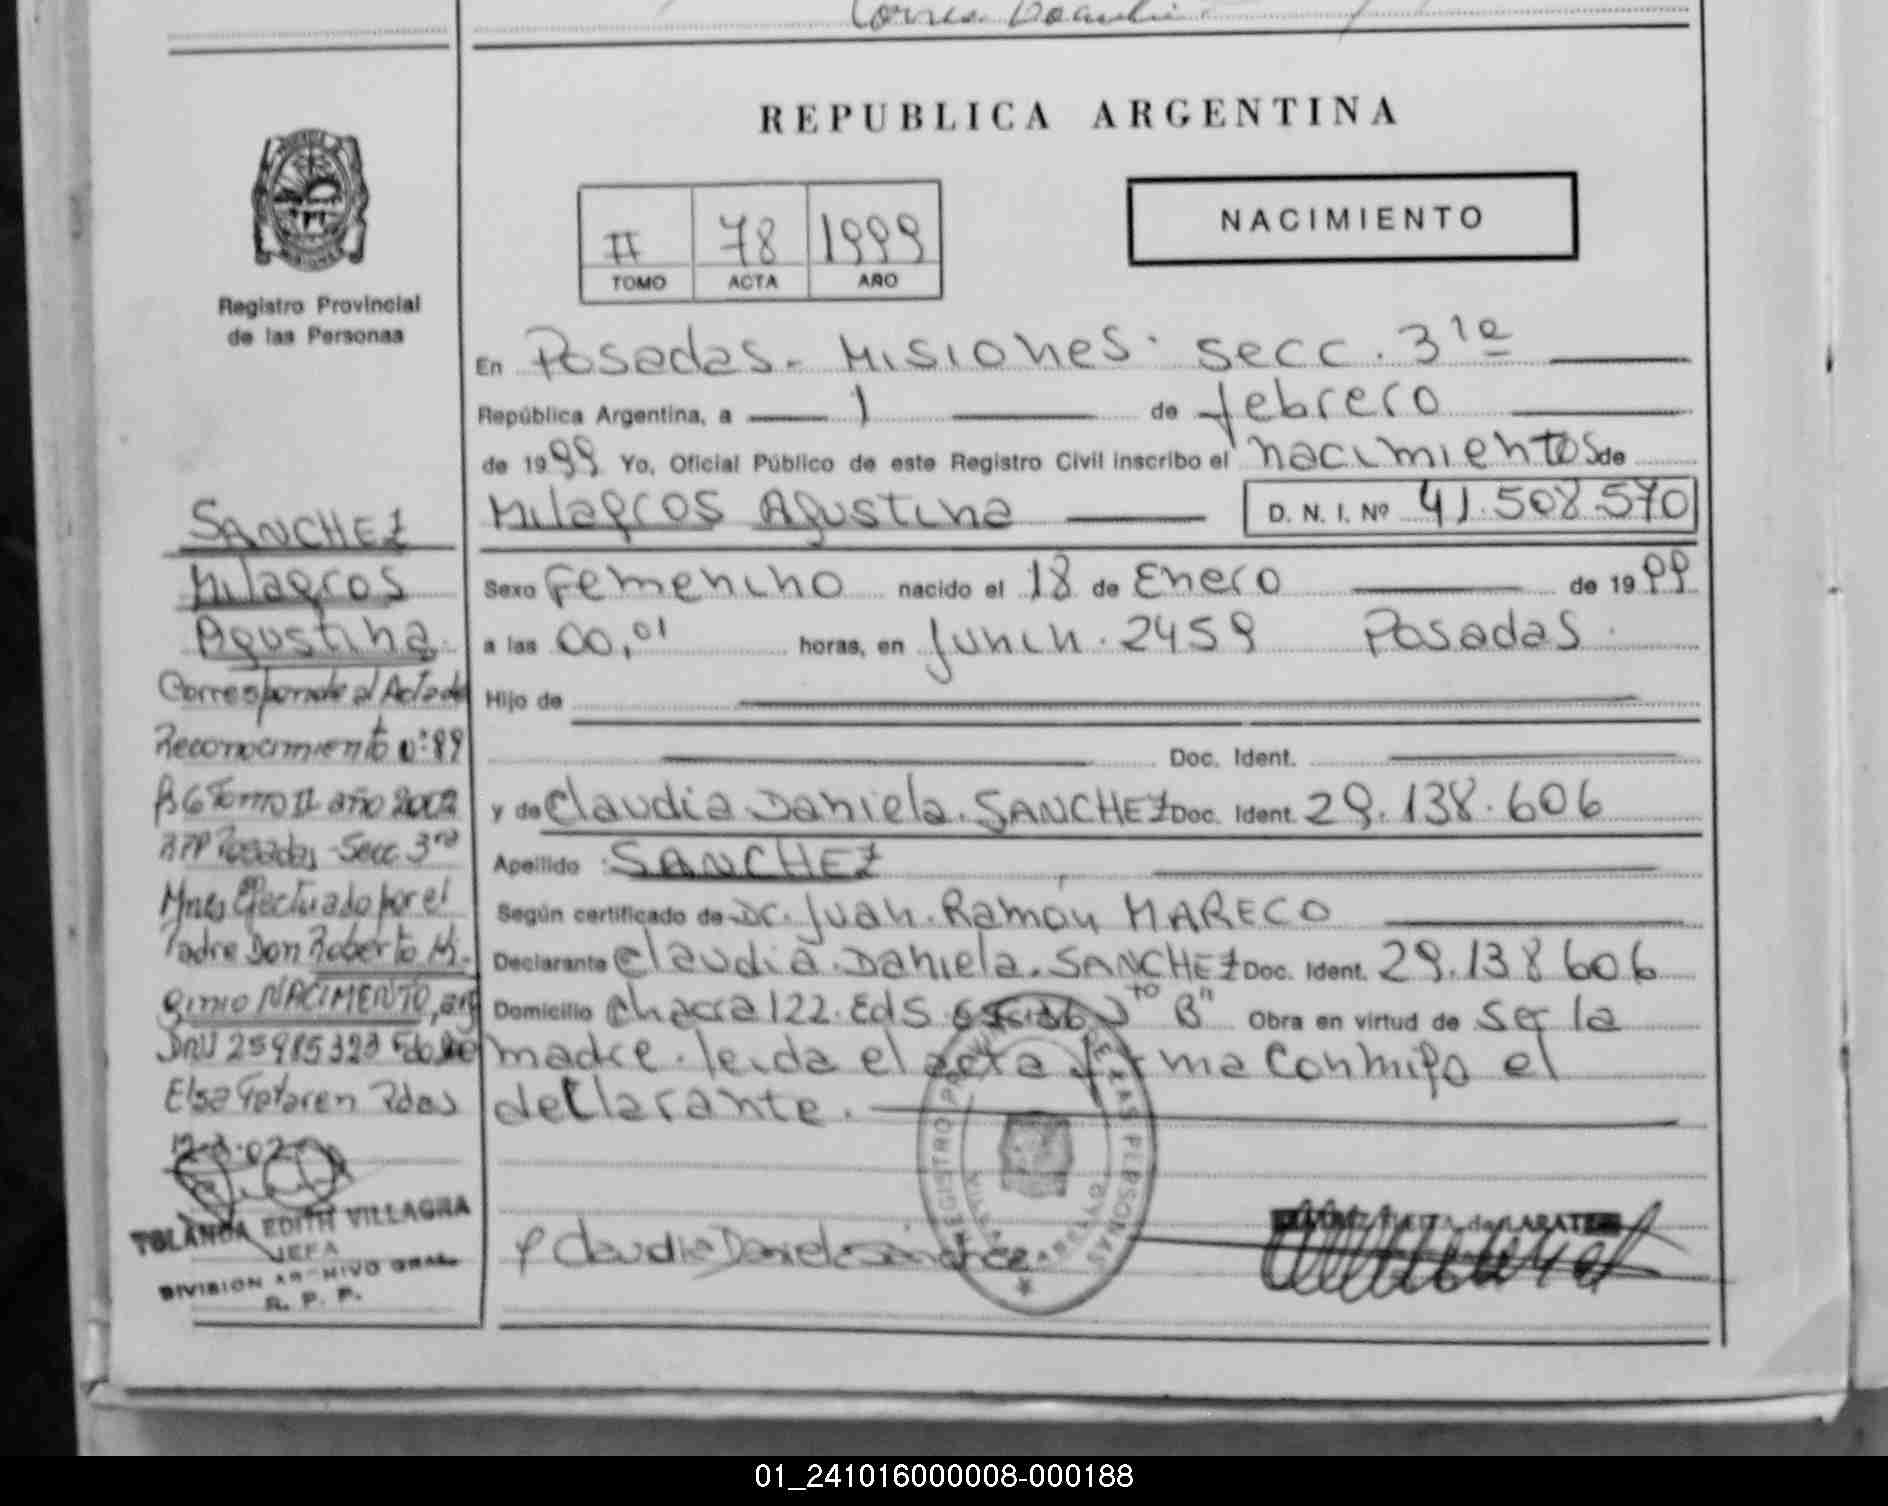 REPUBLICA ARGENTINA
NACIMIENTO
II 78 1999
TOMO ACTA AÑO
Registro Provincial
de las Personas
En Posadas - Misiones. Secc. 3ra
República Argentina, a 1 de febrero
de 1999 Yo, Oficial Público de este Registro Civil inscribo el nacimientos de
Milagros Agustina D. N. I. Nº 41.508.570
Sexo Femenino nacido el 18 de Enero de 1999
a las 00,01 horas, en Junin. 2459 Posadas.
Hijo de
Doc. Ident.
y de Claudia Daniela. SANCHEZ Doc. Ident. 29.138.606
Apellido SANCHEZ
Según certificado de Dr. Juan. Ramón MARECO
Declarante Claudia. Daniela. SANCHEZ Doc. Ident. 29.138 606
Domicilio Chacra 122. Eds "B" Obra en virtud de ser la
madre. leida el acta firma conmigo el
declarante.
Claudia Daniela Sánchez
SANCHEZ
Milagros
Agustina.
Corresponde al Acta de
Reconocimiento nº 89
Tomo II año 2002
RPP Posadas - Secc. 3ra
Mnes Efectuado por el
Padre Don Roberto Hi-
ginio NACIMENTO, arg
DNI 25985323
Pdas
YOLANDA EDITH VILLAGRA
JEFA
DIVISION ARCHIVO GRAL.
R. P. P.
REGISTRO PROVINCIAL DE LAS PERSONAS
01_241016000008-000188